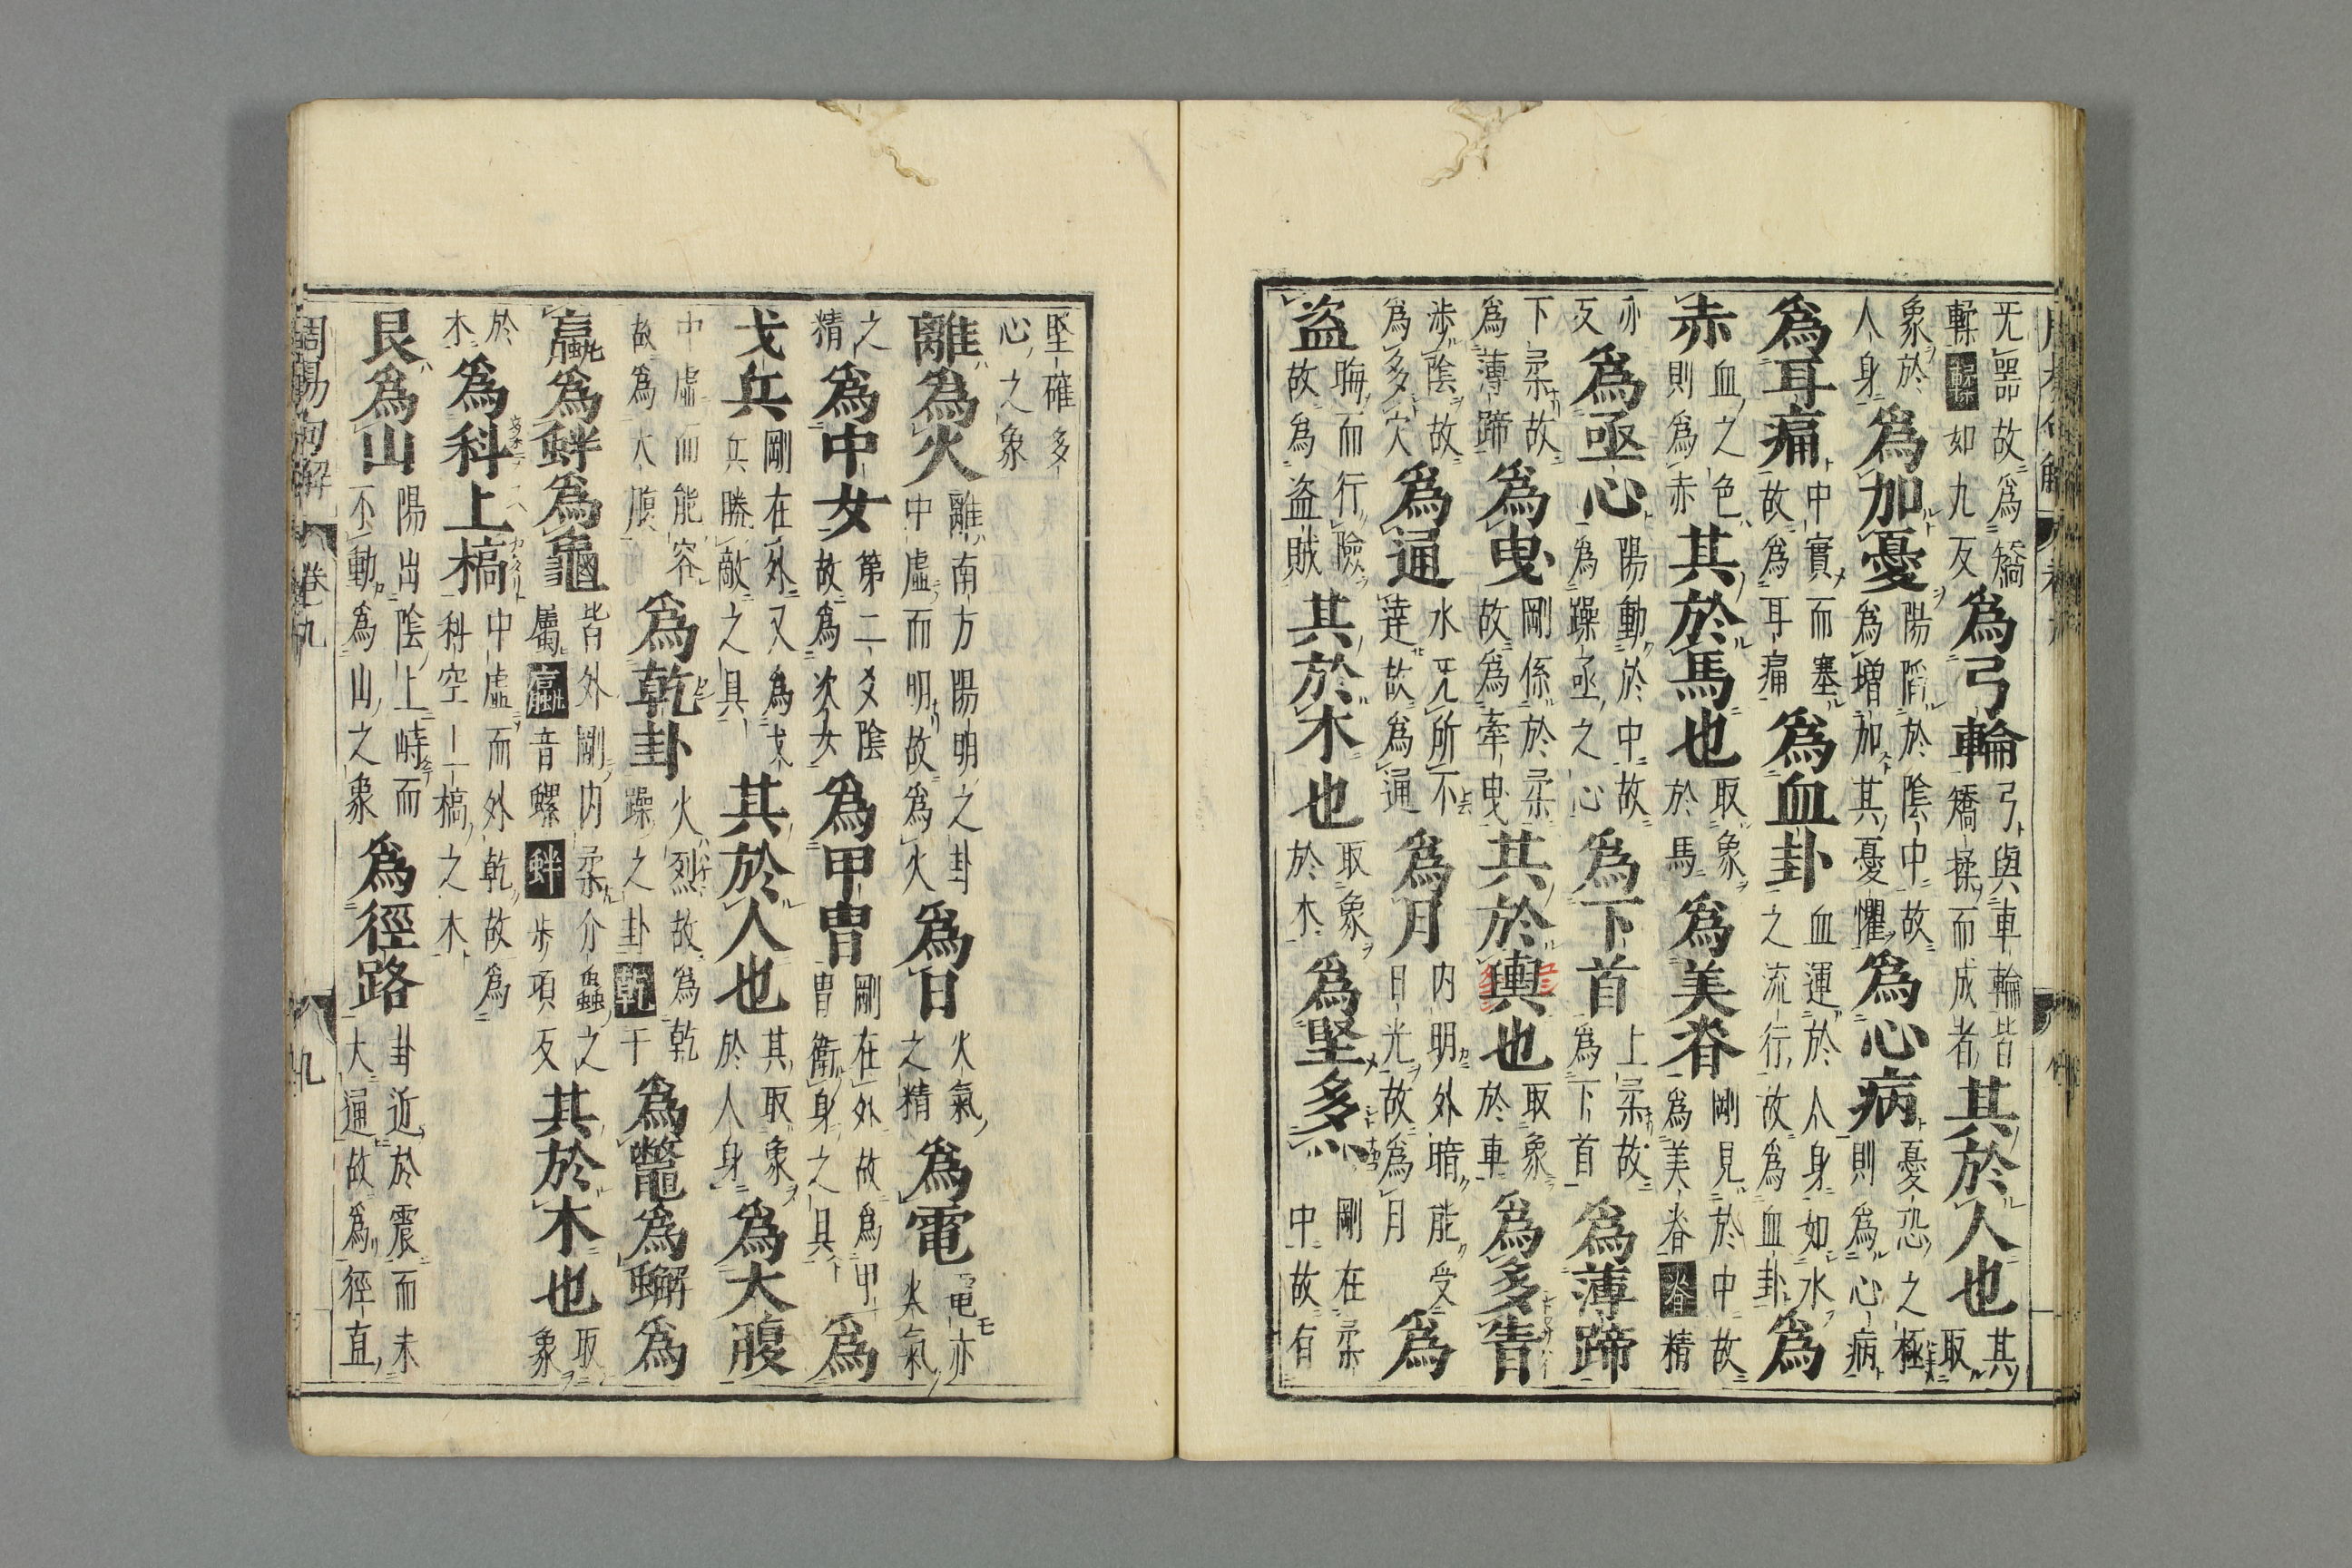 无噐故爲矯輮輮如九反爲弓輪弓與車輪皆矯揉而成者其於人也其取
象於人身爲加憂陽陷於陰中故爲増加其憂懼爲心病憂恐之極則爲心病
爲耳痛中實而塞故爲耳痛爲血卦血運於人身如水之流行故爲血卦爲
赤血之色則爲赤其於馬也取象於馬爲美脊剛見於中故爲美脊脊精
亦反爲亟心陽動於中故爲躁亟之心爲下首上柔故爲下首爲薄蹄
下柔故爲薄蹄爲曳剛係於柔故爲牽曳其於輿也取象於車爲多眚
渉陰故爲多穴爲通水无所不達故爲通爲月内明外暗能受日光故爲月爲
盗晦而行險故爲盗賊其於木也取象於木爲堅多心剛在柔中故有
堅確多心之象
離爲火離南方陽明之卦中虚而明故爲火爲日火氣之精爲電電亦火氣
之精爲中女第二爻陰故爲次女爲甲冑剛在外故爲甲冑衛身之具爲
戈兵剛在外又爲戈兵勝敵之具其於人也其取象於人身爲大腹
中虚而能容故爲大腹爲乾卦火烈故爲乾躁之卦乾干爲鼈爲蟹爲
蠃爲蚌爲龜皆外剛内柔介蟲之屬蠃音螺蚌歩項反其於木也取象
於木爲科上槁中虚而外乾故爲科空上槁之木
艮爲山陽出陰上峙而不動爲山之象爲徑路卦近於震而未大通故爲徑直
周易句解 卷九 九